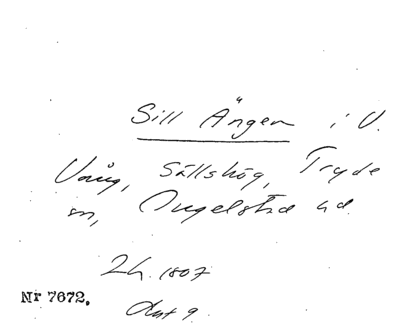 Sill Ängen i V.
Vång, Sällshög, Tryde
sn, Ingelstad hd.
2h. 1807
Akt 9.
Nr 7672.